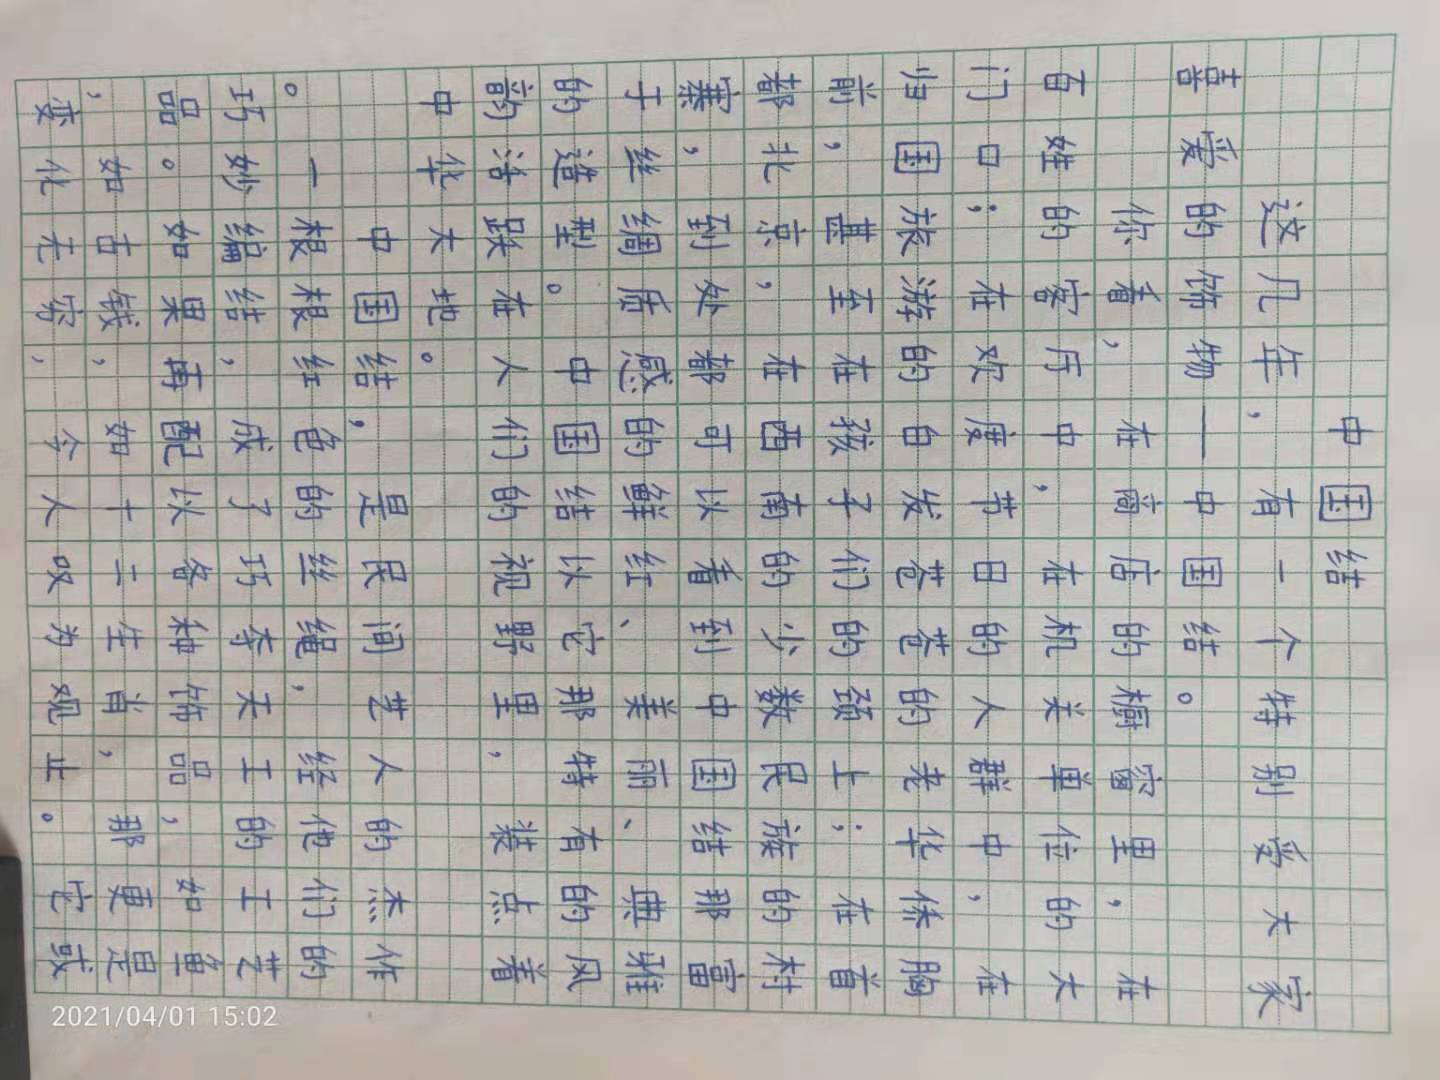 中国结
这几年，有一个特别受大家
喜爱的饰物—中国结。
你看，在商店的橱窗里，在
百姓的客厅中，在机关单位的大
门口；在欢度节日的人群中，在
归国旅游的白发苍苍的老华侨胸
前，甚至在孩子们的颈上；在首
都北京，在西南的少数民族的村
寨，到处都可以看到中国结那富
于丝绸质感的鲜红、美丽、典雅
的造型。中国结以它那特有的风
韵活跃在人们的视野里，装点着
中华大地。
中国结，是民间艺人的杰作
。一根根红色的丝绳，经他们的
巧妙编结，成了巧夺天工的工艺
品。如果再配以各种饰品，如鱼
，如古钱，如十二生肖，那更是
变化无穷，令人叹为观止。它或
2021/04/01 15:02